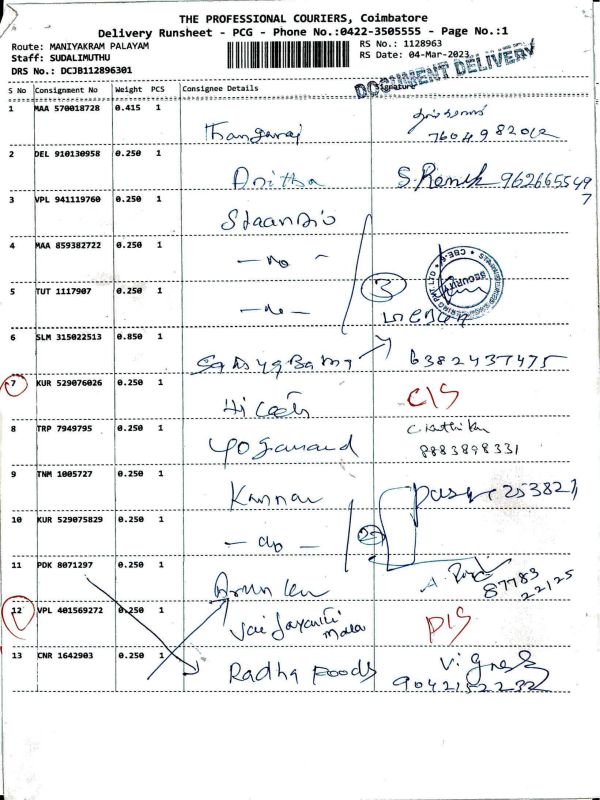 THE PROFESSIONAL COURIERS, Coimbatore
Delivery Runsheet - PCG - Phone No.:0422-3505555 - Page No.:1
Route: MANIYAKRAM PALAYAM
Staff: SUDALIMUTHU
DRS No.: DCJB112896301
RS No.: 1128963
RS Date: 04-Mar-2023
DOCUMENT DELIVERY
S No Consignment No Weight PCS Consignee Details Signature
1 MAA 570018728 0.415 1
Thangaraj
2 DEL 910130958 0.250 1
Anitha S. 962665549
7
3 VPL 941119760 0.250 1
4 MAA 859382722 0.250 1
- do -
5 TUT 1117907 0.250 1
- do -
3
SECURITY
6 SLM 315022513 0.850 1
6382437475
7 KUR 529076026 0.250 1
C/S
8 TRP 7949795 0.250 1
Yoganand
8883898331
9 TNM 1005727 0.250 1
Kannan
10 KUR 529075829 0.250 1
- do -
2
11 PDK 8071297 0.250 1
Arun
87783
22125
12 VPL 401569272 0.250 1
D/S
13 CNR 1642903 0.250 1
Radha Foods
9042152232